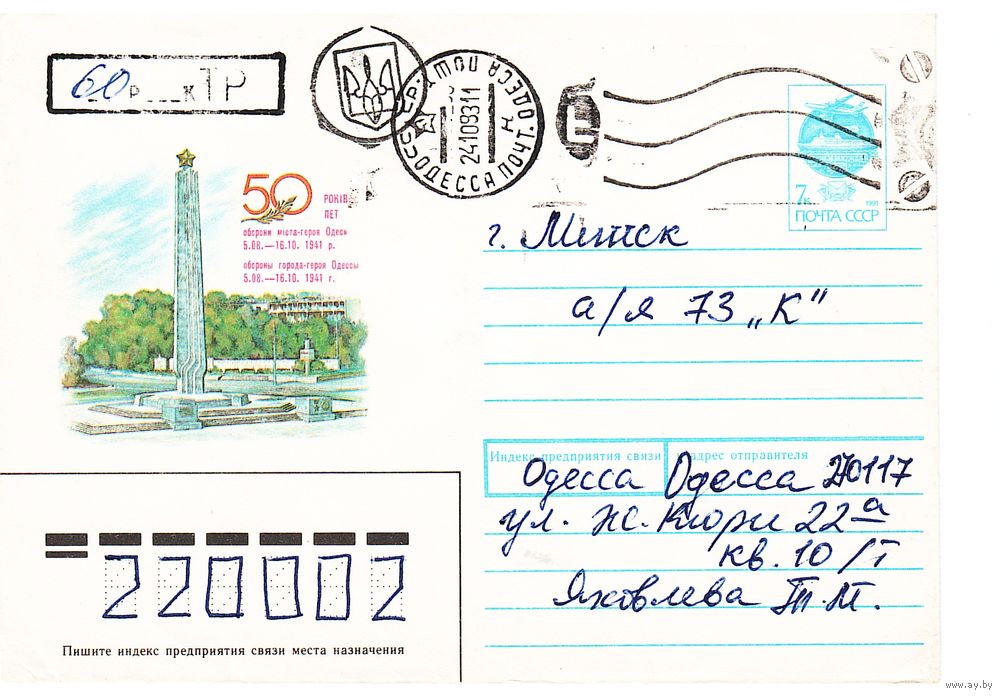 60 р к ТР
СССР ПОШТА ОДЕССА
24109311
ОДЕССА ПОЧТ.
50 РОКІВ
ЛЕТ
оборони міста-героя Одеси
5.08.—16.10. 1941 р.
обороны города-героя Одессы
5.08.—16.10. 1941 г.
7к
1991
ПОЧТА СССР
г. Минск
а/я 73 „К"
Индекс предприятия связи адрес отправителя
Одесса Одесса 270117
ул. Ж. Кюри 22а
кв. 10 /Т
Яковлева Т. М.
220002
Пишите индекс предприятия связи места назначения
www.ay.by